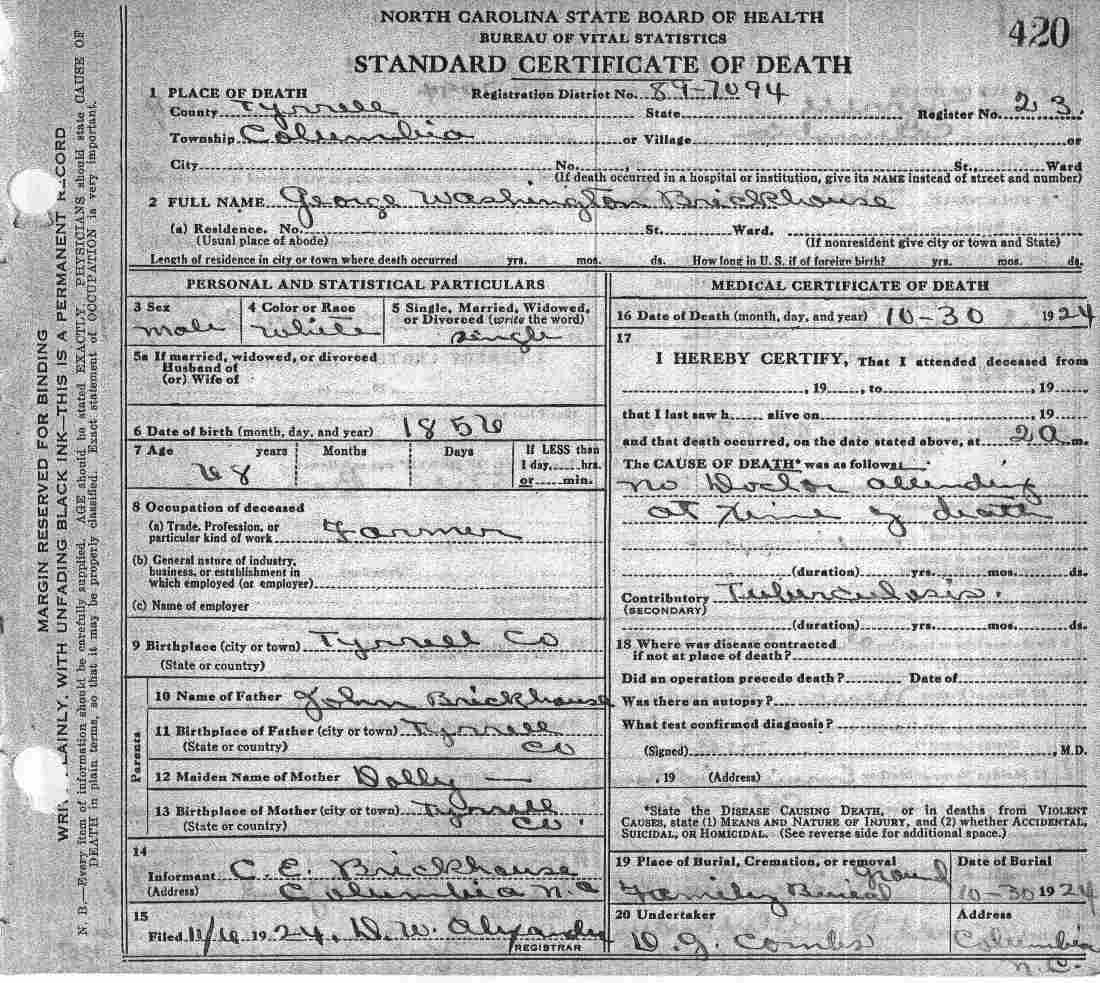 NORTH CAROLINA STATE BOARD OF HEALTH
BUREAU OF VITAL STATISTICS
420
STANDARD CERTIFICATE OF DEATH
1 PLACE OF DEATH Registration District No. 89-7094
County Tyrrell State Register No. 23.
Township Columbia or Village or
City No. , St., Ward
(If death occurred in a hospital or institution, give its NAME instead of street and number)
2 FULL NAME George Washington Brickhouse
(a) Residence. No. St. Ward.
(Usual place of abode) (If nonresident give city or town and State)
Length of residence in city or town where death occurred yrs. mos. ds. How long in U. S. if of foreign birth? yrs. mos. ds.
PERSONAL AND STATISTICAL PARTICULARS
3 Sex 4 Color or Race 5 Single, Married, Widowed,
or Divorced (write the word)
male white single
5a If married, widowed, or divorced
Husband of
(or) Wife of
6 Date of birth (month, day, and year) 1856
7 Age years Months Days If LESS than
1 day, hrs.
or min.
68
8 Occupation of deceased
(a) Trade, Profession, or
particular kind of work Farmer
(b) General nature of industry,
business, or establishment in
which employed (or employer)
(c) Name of employer
9 Birthplace (city or town) Tyrrell Co
(State or country)
Parents
10 Name of Father John Brickhouse
11 Birthplace of Father (city or town) Tyrrell
(State or country) Co
12 Maiden Name of Mother Dolly —
13 Birthplace of Mother (city or town) Tyrrell
(State or country) Co.
14
Informant C. E. Brickhouse
(Address) Columbia N.C
15
Filed 11/16 1924, D. W. Alexander
REGISTRAR
MEDICAL CERTIFICATE OF DEATH
16 Date of Death (month, day, and year) 10-30 1924
17
I HEREBY CERTIFY, That I attended deceased from
, 19 , to , 19
that I last saw h alive on , 19
and that death occurred, on the date stated above, at m.
The CAUSE OF DEATH* was as follows:
no Doctor attending
at time of death
(duration) yrs. mos. ds.
Contributory Tuberculosis.
(SECONDARY)
(duration) yrs. mos. ds.
18 Where was disease contracted
if not at place of death?
Did an operation precede death? Date of
Was there an autopsy?
What test confirmed diagnosis?
(Signed) , M.D.
, 19 (Address)
*State the DISEASE CAUSING DEATH, or in deaths from VIOLENT
CAUSES, state (1) MEANS AND NATURE OF INJURY, and (2) whether ACCIDENTAL,
SUICIDAL, OR HOMICIDAL. (See reverse side for additional space.)
19 Place of Burial, Cremation, or removal Date of Burial
Family Burial ground 10-30 1924
20 Undertaker Address
D. J. Combs Columbia
N.C.
MARGIN RESERVED FOR BINDING
PLAINLY, WITH UNFADING BLACK INK—THIS IS A PERMANENT RECORD
N. B.—Every item of information should be carefully supplied. AGE should be stated EXACTLY. PHYSICIANS should state CAUSE OF
DEATH in plain terms, so that it may be properly classified. Exact statement of OCCUPATION is very important.